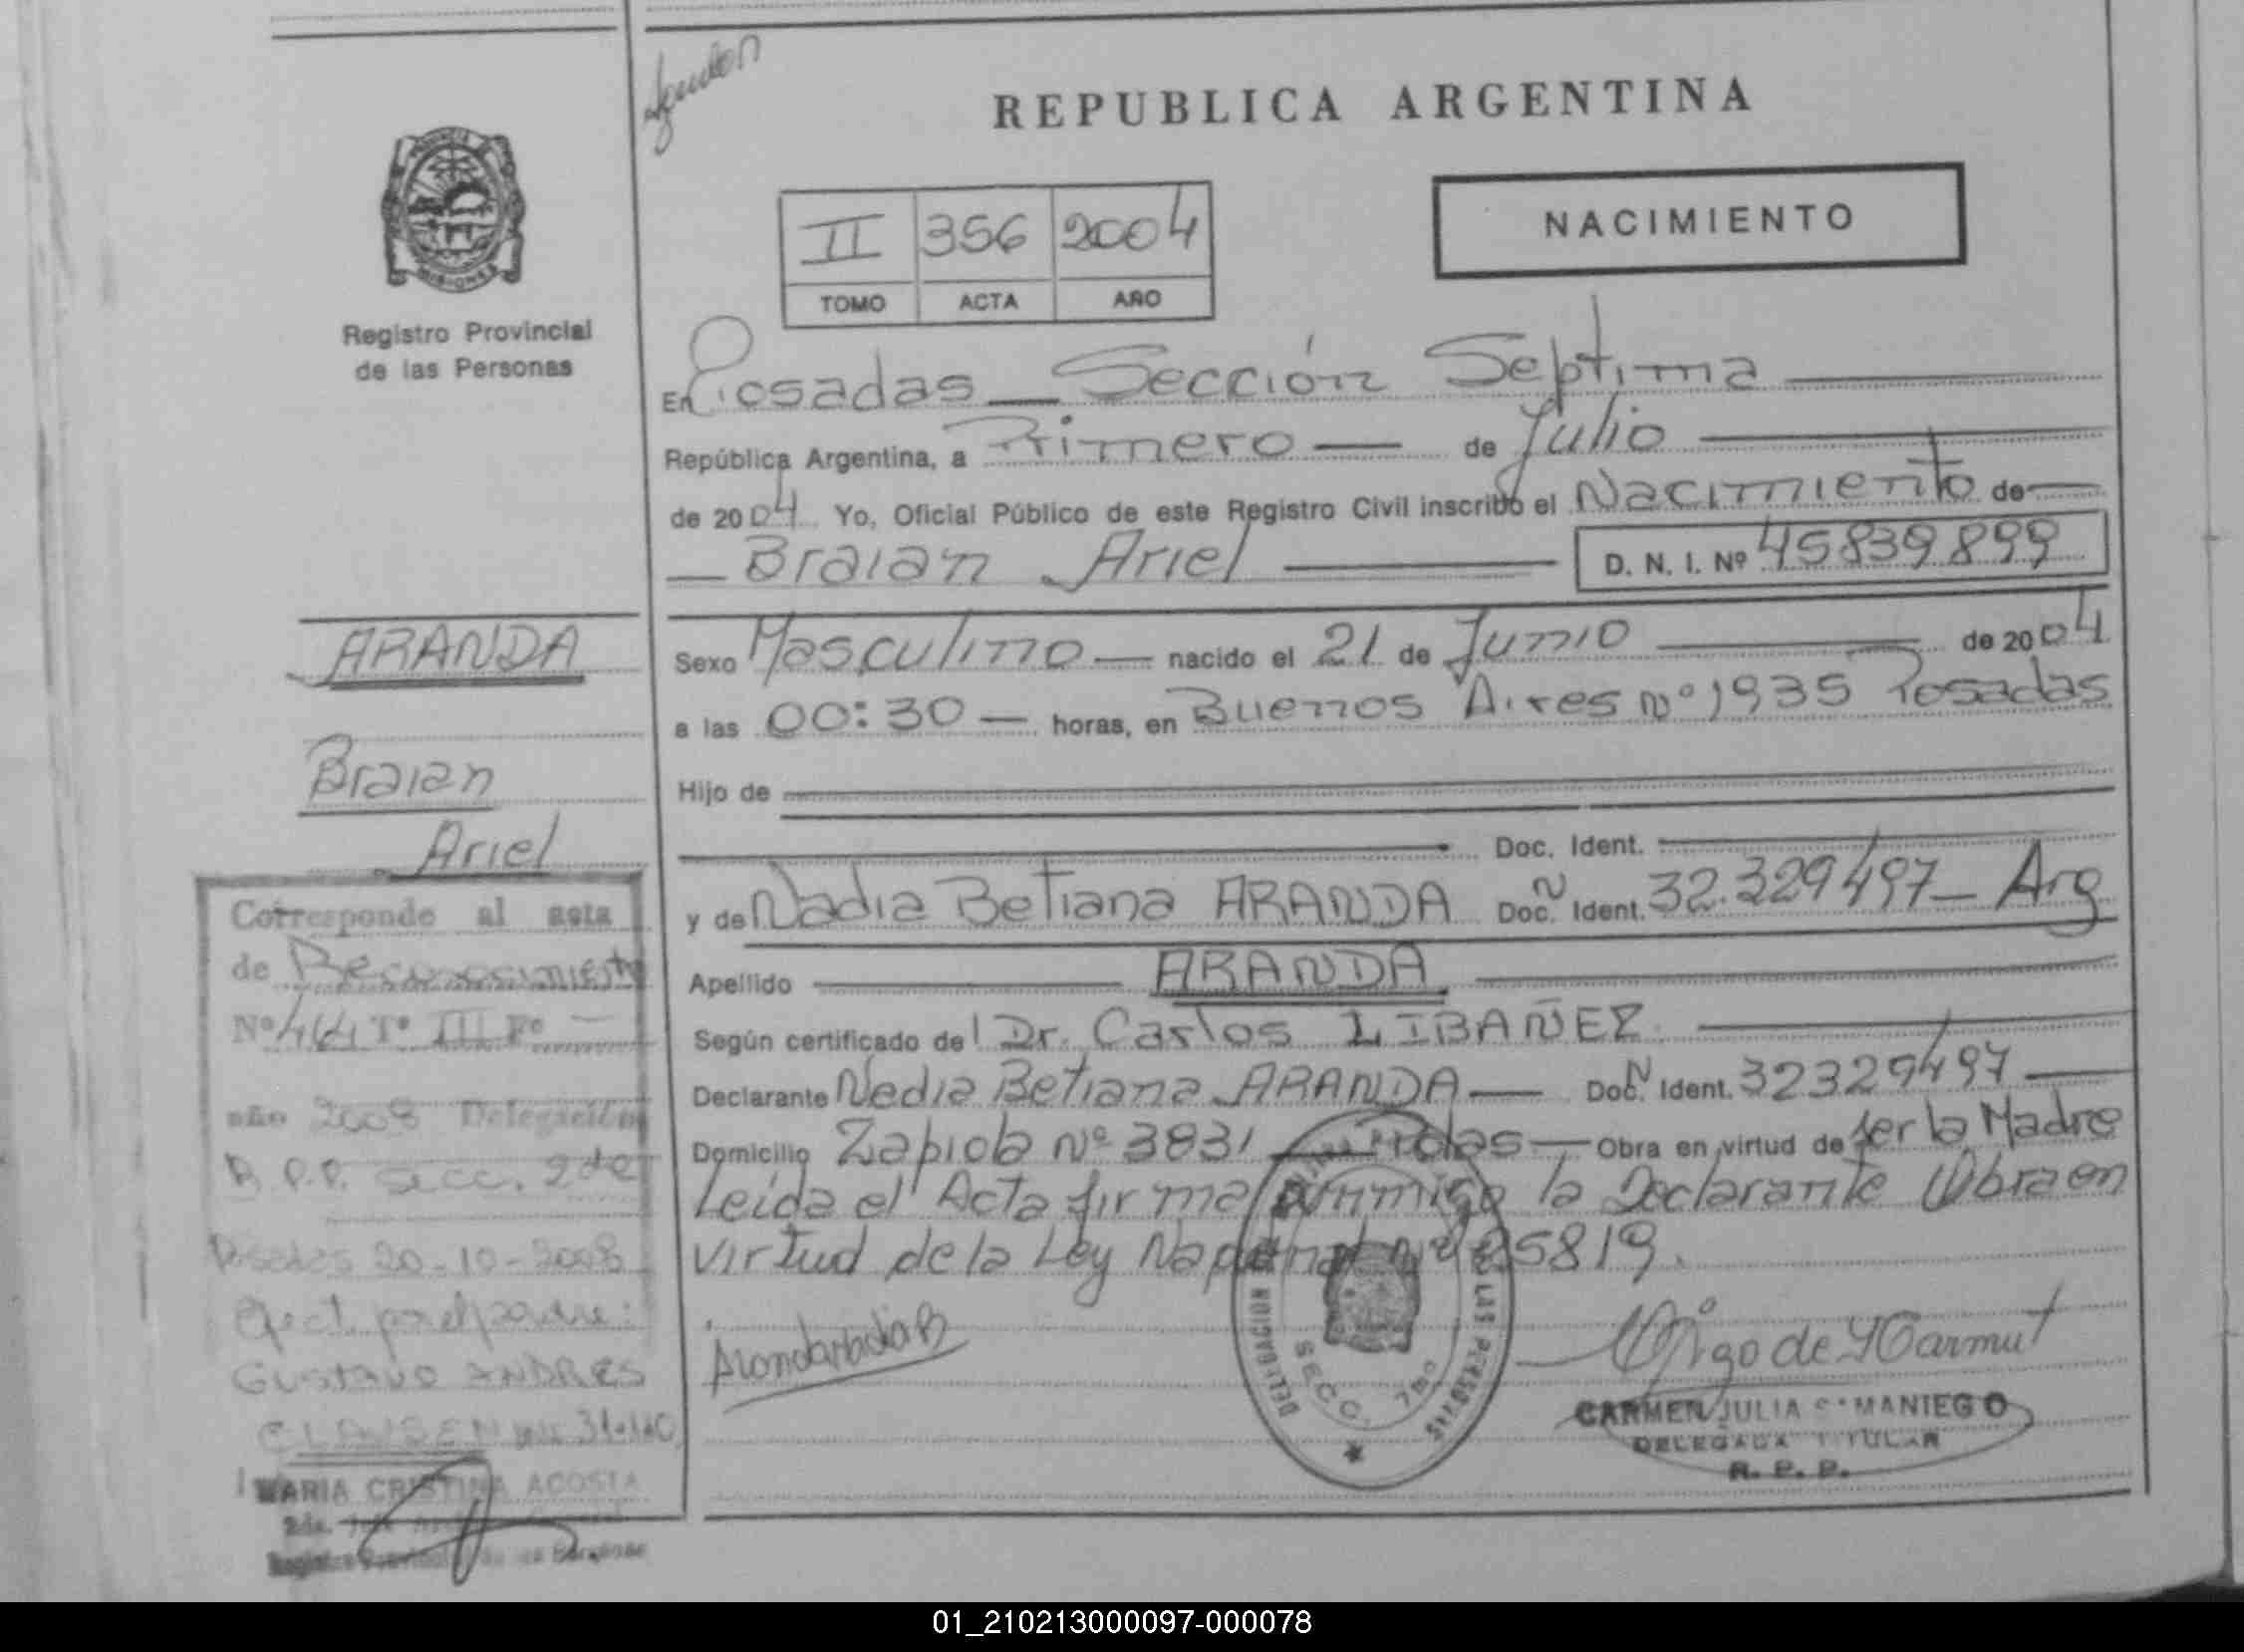 REPUBLICA ARGENTINA
NACIMIENTO
II 356 2004
TOMO ACTA AÑO
PROVINCIA
MISIONES
Registro Provincial
de las Personas
En Posadas — Sección Septima
República Argentina, a Primero — de Julio
de 2004 Yo, Oficial Público de este Registro Civil inscribo el Nacimiento de
Braian Ariel D. N. I. Nº 45839899
Sexo Masculino — nacido el 21 de Junio de 2004
a las 00:30 — horas, en Buenos Aires Nº 1935 Posadas
Hijo de
Doc. Ident.
y de Nadia Betiana ARANDA Doc. N Ident. 32.329497 — Arg
Apellido ARANDA
Según certificado del Dr. Carlos LIBAÑEZ
Declarante Nadia Betiana ARANDA — Doc. N Ident. 32329497
Domicilio Zapiola Nº 3831 — Pdas — Obra en virtud de ser la Madre
Leída el Acta firma conmigo la Declarante Obra en
virtud de la Ley Nacional Nº 25819.
CARMEN JULIA SAMANIEGO
DELEGADA TITULAR
R. P. P.
DELEGACION
SECC. 7ma
DE LAS PERSONAS
ARANDA
Braian
Ariel
Corresponde al acta
de Reconocimiento
Nº 464 Tº III Fº —
año 2008 Delegación
R.P.P. secc. 2da
Posadas 20-10-2008
Efect. por el padre:
GUSTAVO ANDRES
CLAUSEN
MARIA CRISTINA ACOSTA
2da.
Registro Provincial de las Personas
01_210213000097-000078